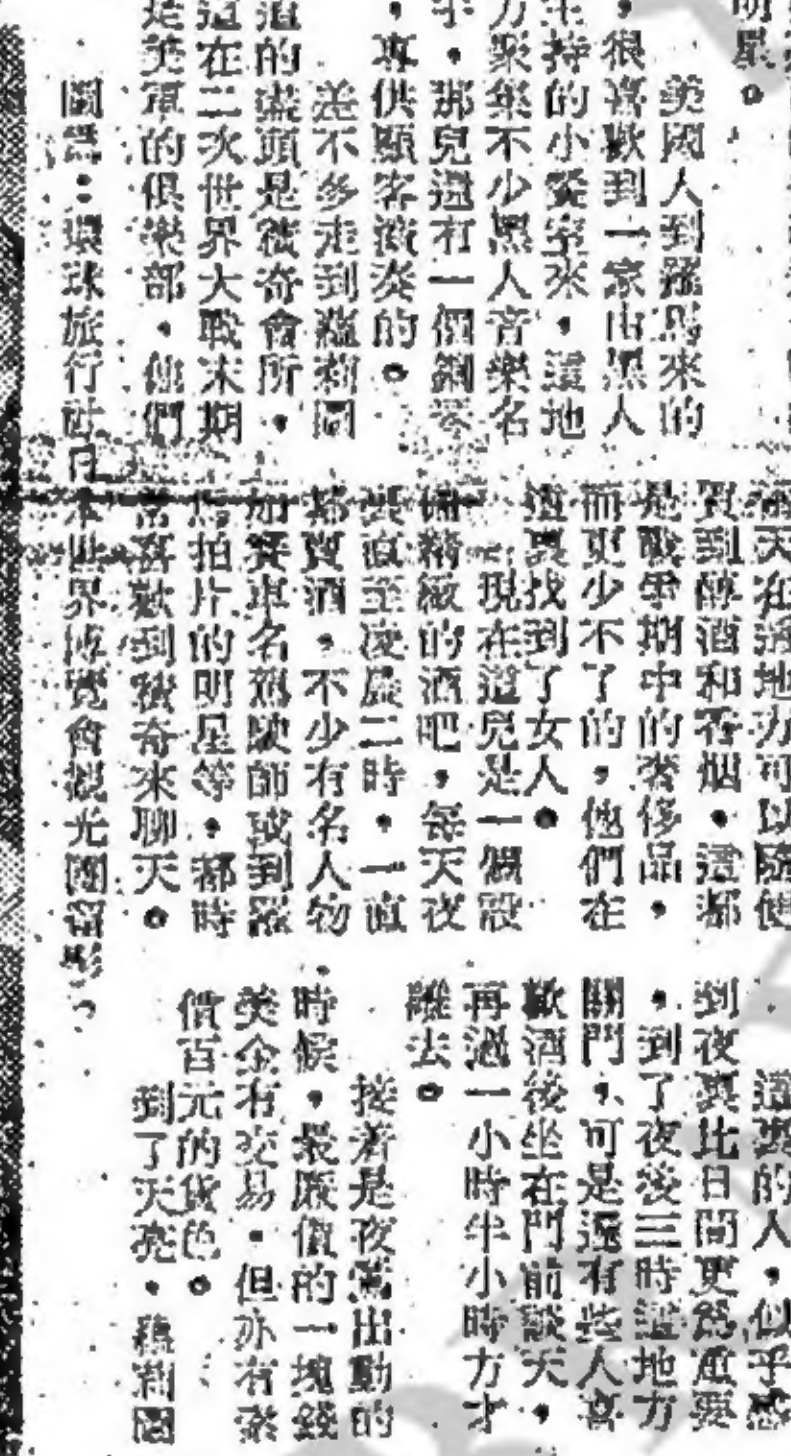 明星。
美國人到羅馬來的
，很喜歡到一家由黑人
主持的小餐室來，這地
方聚集不少黑人音樂名
手，那兒還有一個鋼琴
，專供顧客彈奏的。
差不多走到
道的盡頭是
奇會所，
這在二次世界大戰末期
是美軍的俱樂部，他們
天在這地方可以隨便
買到醇酒和香烟，這都
是戰爭期中的奢侈品，
而更少不了的，他們在
這裏找到了女人。
現在這兒是一個設
備精緻的酒吧，每天夜
裏直至凌晨二時，一直
都賣酒，不少有名人物
如賽車名駕駛師或到羅
馬拍片的明星等，都時
常喜歡到
奇來聊天。
這裏的人，似乎感
到夜裏比日間更為重要
，到了夜後三時這地方
關門，可是還有些人喜
歡酒後坐在門前談天，
再過一小時半小時方才
離去。
接着是夜鶯出動的
時候，最廉價的一塊錢
美金有交易，但亦有索
價百元的貨色。
到了天亮，
圖為：環球旅行社日本世界博覽會觀光團留影。